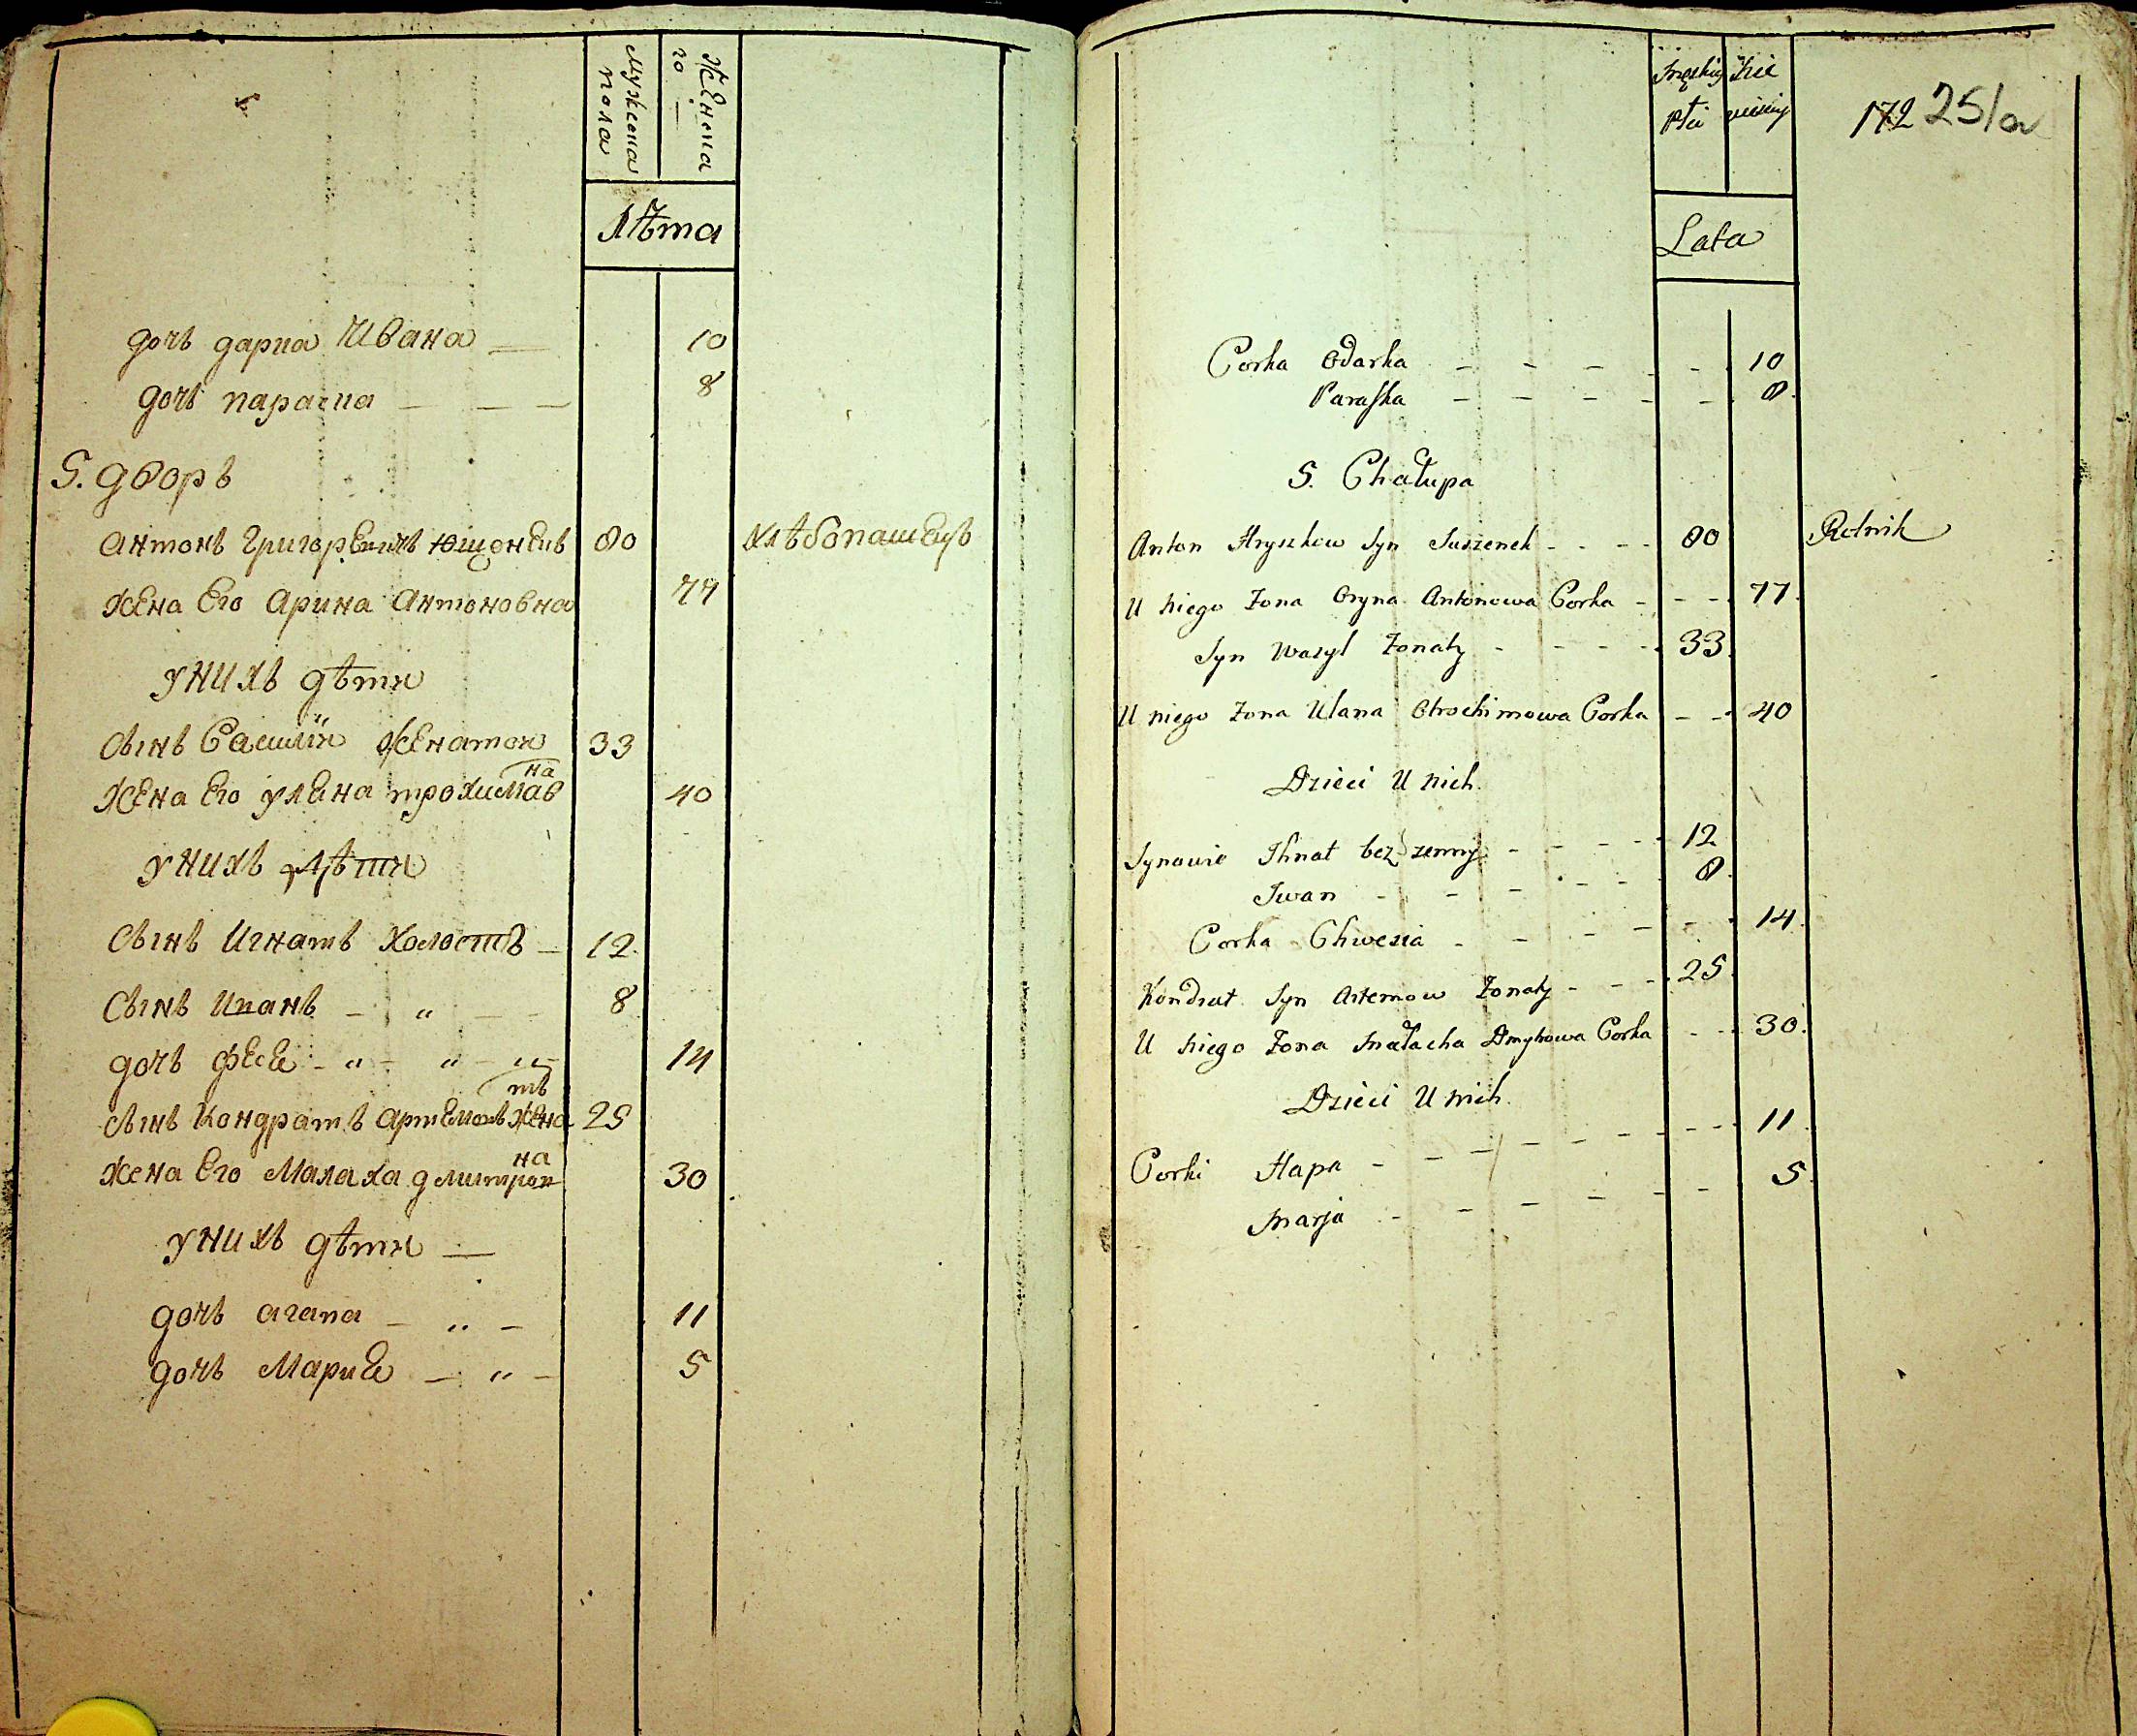 Мужеска пола
Женска го
Лѣта
дочь дарка Ивана 10
дочь параска 8
5. дворъ
Антонъ Григорьевичъ Ющенкъ 80 хлѣбопашецъ
жена Его Арина Антоновна 77
у нихъ дѣти
сынъ женатой 33
жена Его улЕна трохимовна 40
у нихъ дѣти
сынъ Игнатъ Холостъ 12
сынъ Иванъ 8
дочь феся 14
сынъ Кондратъ Артемовъ женатъ 25
жена Его Малаха дмитровна 30
у нихъ дѣти
дочь агапа 11
дочь Мария 5
Męskiey Płci
Żeńskiey
172 251a
Lata
Corka Odarka 10
Paraska 8
5. Chałupa
Anton Hryszkow Syn Juszenek 80 Rolnik
U niego Zona Oryna Antonowa Corka 77
Syn Wasyl Zonaty 33
U niego Zona Ulana Otrochimowa Corka 40
Dzieci U nich
Synowie Ihnat bezżenny 12
Iwan 8
Corka Chwesia 14
Kondrat Syn Artemow Zonaty 25
U niego Zona Małacha Dmytrowa Corka 30
Dzieci U nich
Corki Hapa 11
Marja 5